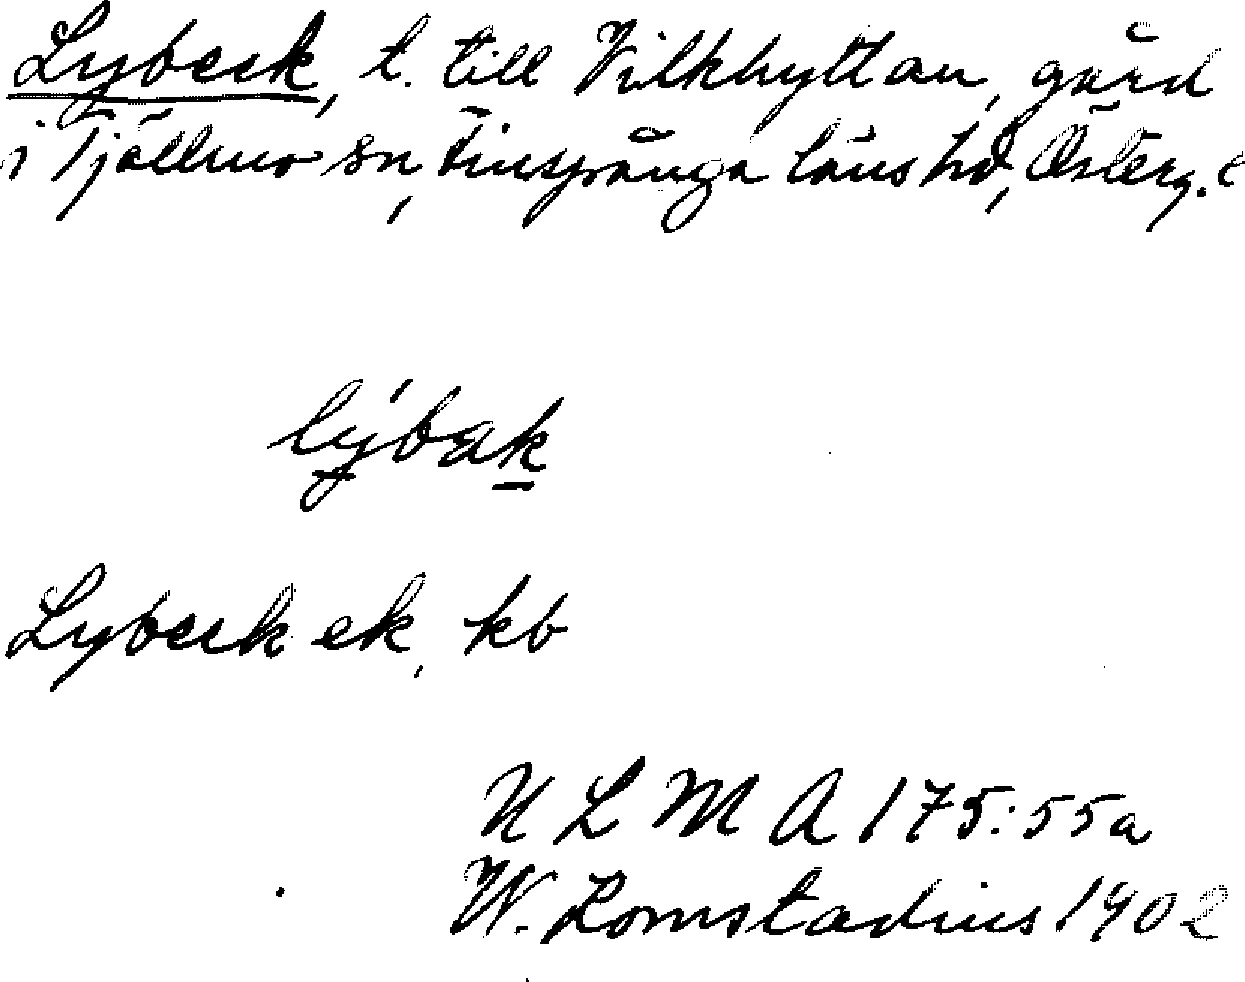 Lybeck, t. till Vilkhyttan, gård
i Tjällmo sn, Finspånga läns hd, Österg.
lýbak
Lybeck ek, kb
ULMA 175:55a
W. Zomstadius 1902